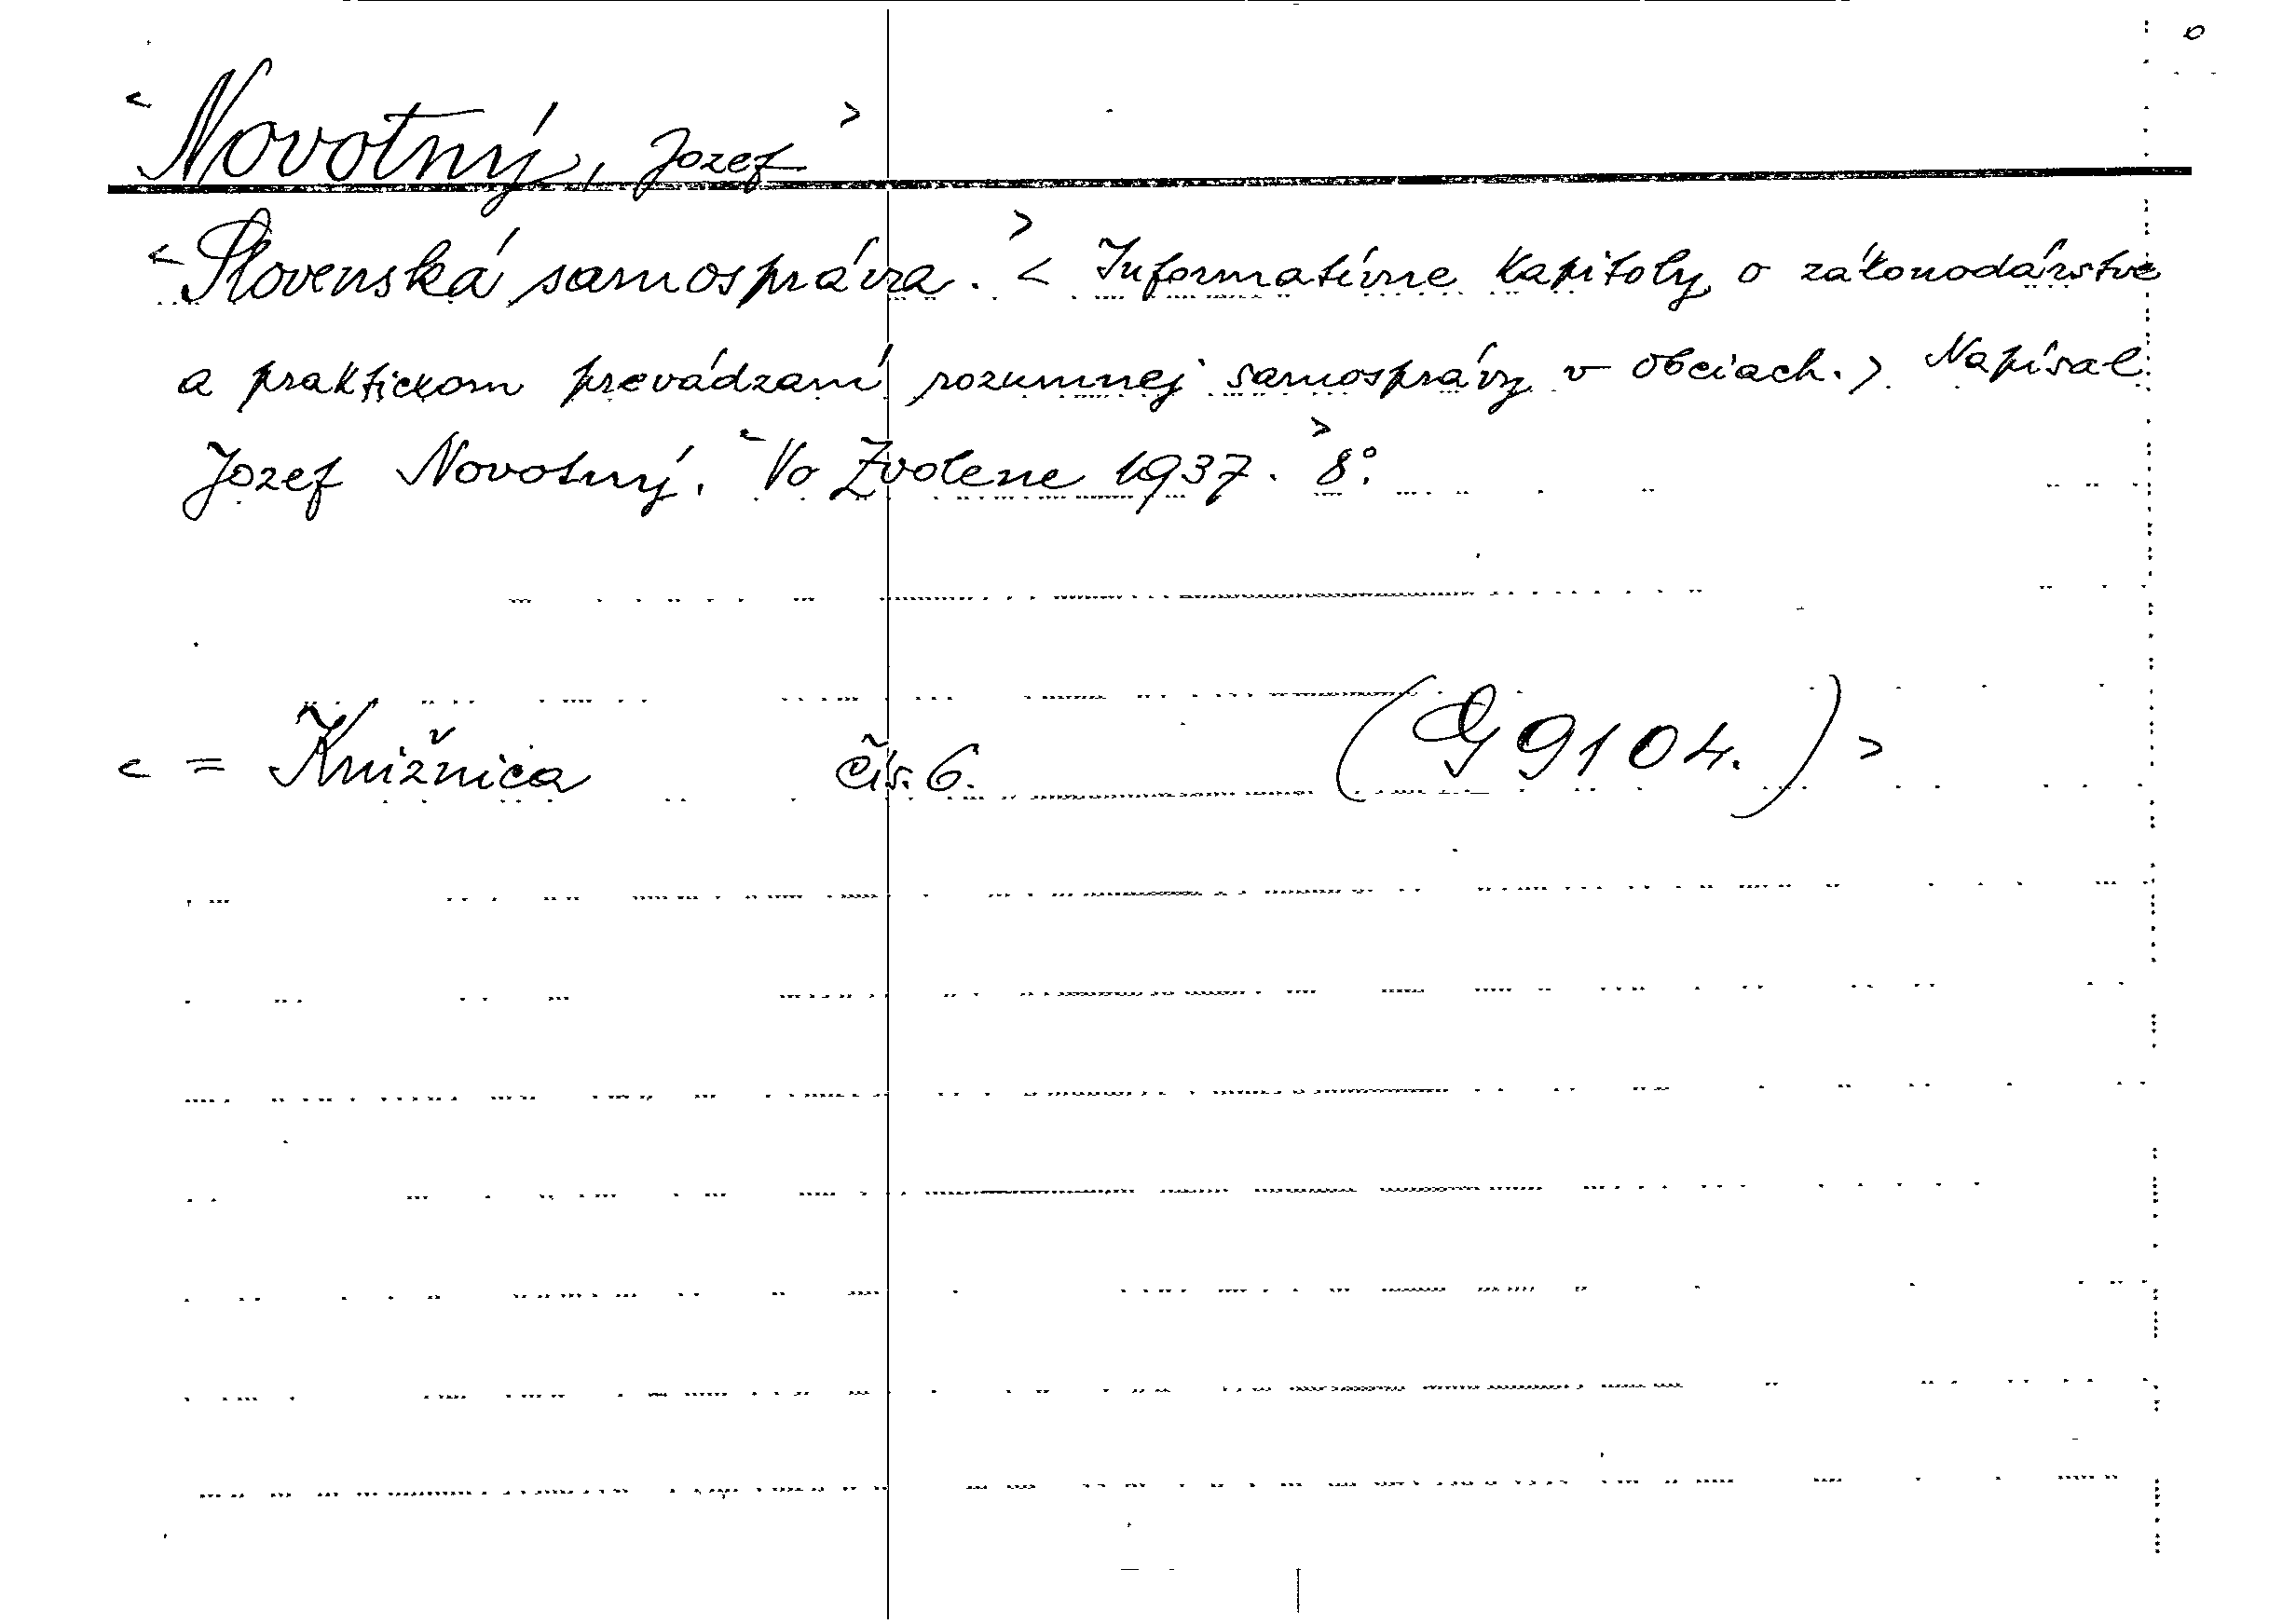 <Novotný, Jozef>
<Slovenská samospráva.> < Informatívne kapitoly o zákonodárstve
a praktickom prevádzaní rozumnej samosprávy v obciach.> Napísal
Jozef Novotný. <Vo Zvolene 1937.> 8°.
< = Knižnica čís. 6. (G 9104.) >